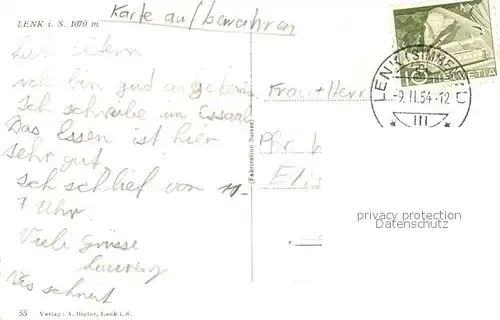 LENK i. S. 1070 m
Karte aufbewahren
Lieb Eltern
ich bin gud angekomm
Ich schreibe im Essaal
Das Essen ist hier
sehr gut
Ich schlief von 11-
7 Uhr.
Viele Grüsse
Laurenz
es schneit
Frau + Herr
Pfr
Elis
HELVETIA
10
LENK (SIMMENTAL)
-9.II.54-12
III
(Fabrication Suisse)
privacy protection
Datenschutz
55 Verlag: A. Bigler, Lenk i. S.